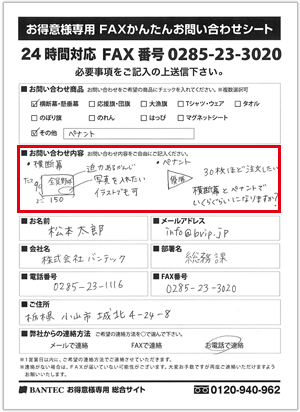 お得意様専用 FAXかんたんお問い合わせシート
24時間対応 FAX番号 0285-23-3020
必要事項をご記入の上送信下さい。
■お問い合わせ商品 お問い合わせをご希望の商品にチェックを入れてください。※複数選択可
☑横断幕・懸垂幕 □応援旗・団旗 □大漁旗 □Tシャツ・ウェア □タオル
□のぼり旗 □のれん □はっぴ □マグネットシート
☑その他 ペナント
■お問い合わせ内容 お問い合わせ内容をご自由にご記入ください。
・横断幕 ・ペナント
迫力あるかんじ
写真を入れたい
イラストでも可
全国野田
90
150
優勝
30枚ほど注文したい
横断幕とペナントで
いくらぐらいになりますか?
■お名前 ■メールアドレス
松本 太郎 info@bvip.jp
■会社名 ■部署名
株式会社 バンテック 総務課
■電話番号 ■FAX番号
0285-23-1116 0285-23-3020
■ご住所
栃木県 小山市 城北 4-24-8
■弊社からの連絡方法 ご希望の連絡方法を○で選んで下さい。
メールで連絡 FAXで連絡 お電話で連絡
※1営業日以内に、ご希望の連絡方法でご連絡させていただきます。
※連絡がない場合は、FAXが届いていない可能性がございます。大変お手数ですが再度ご連絡いただけますよう
お願いいたします。
BANTEC お得意様専用 総合サイト 0120-940-962